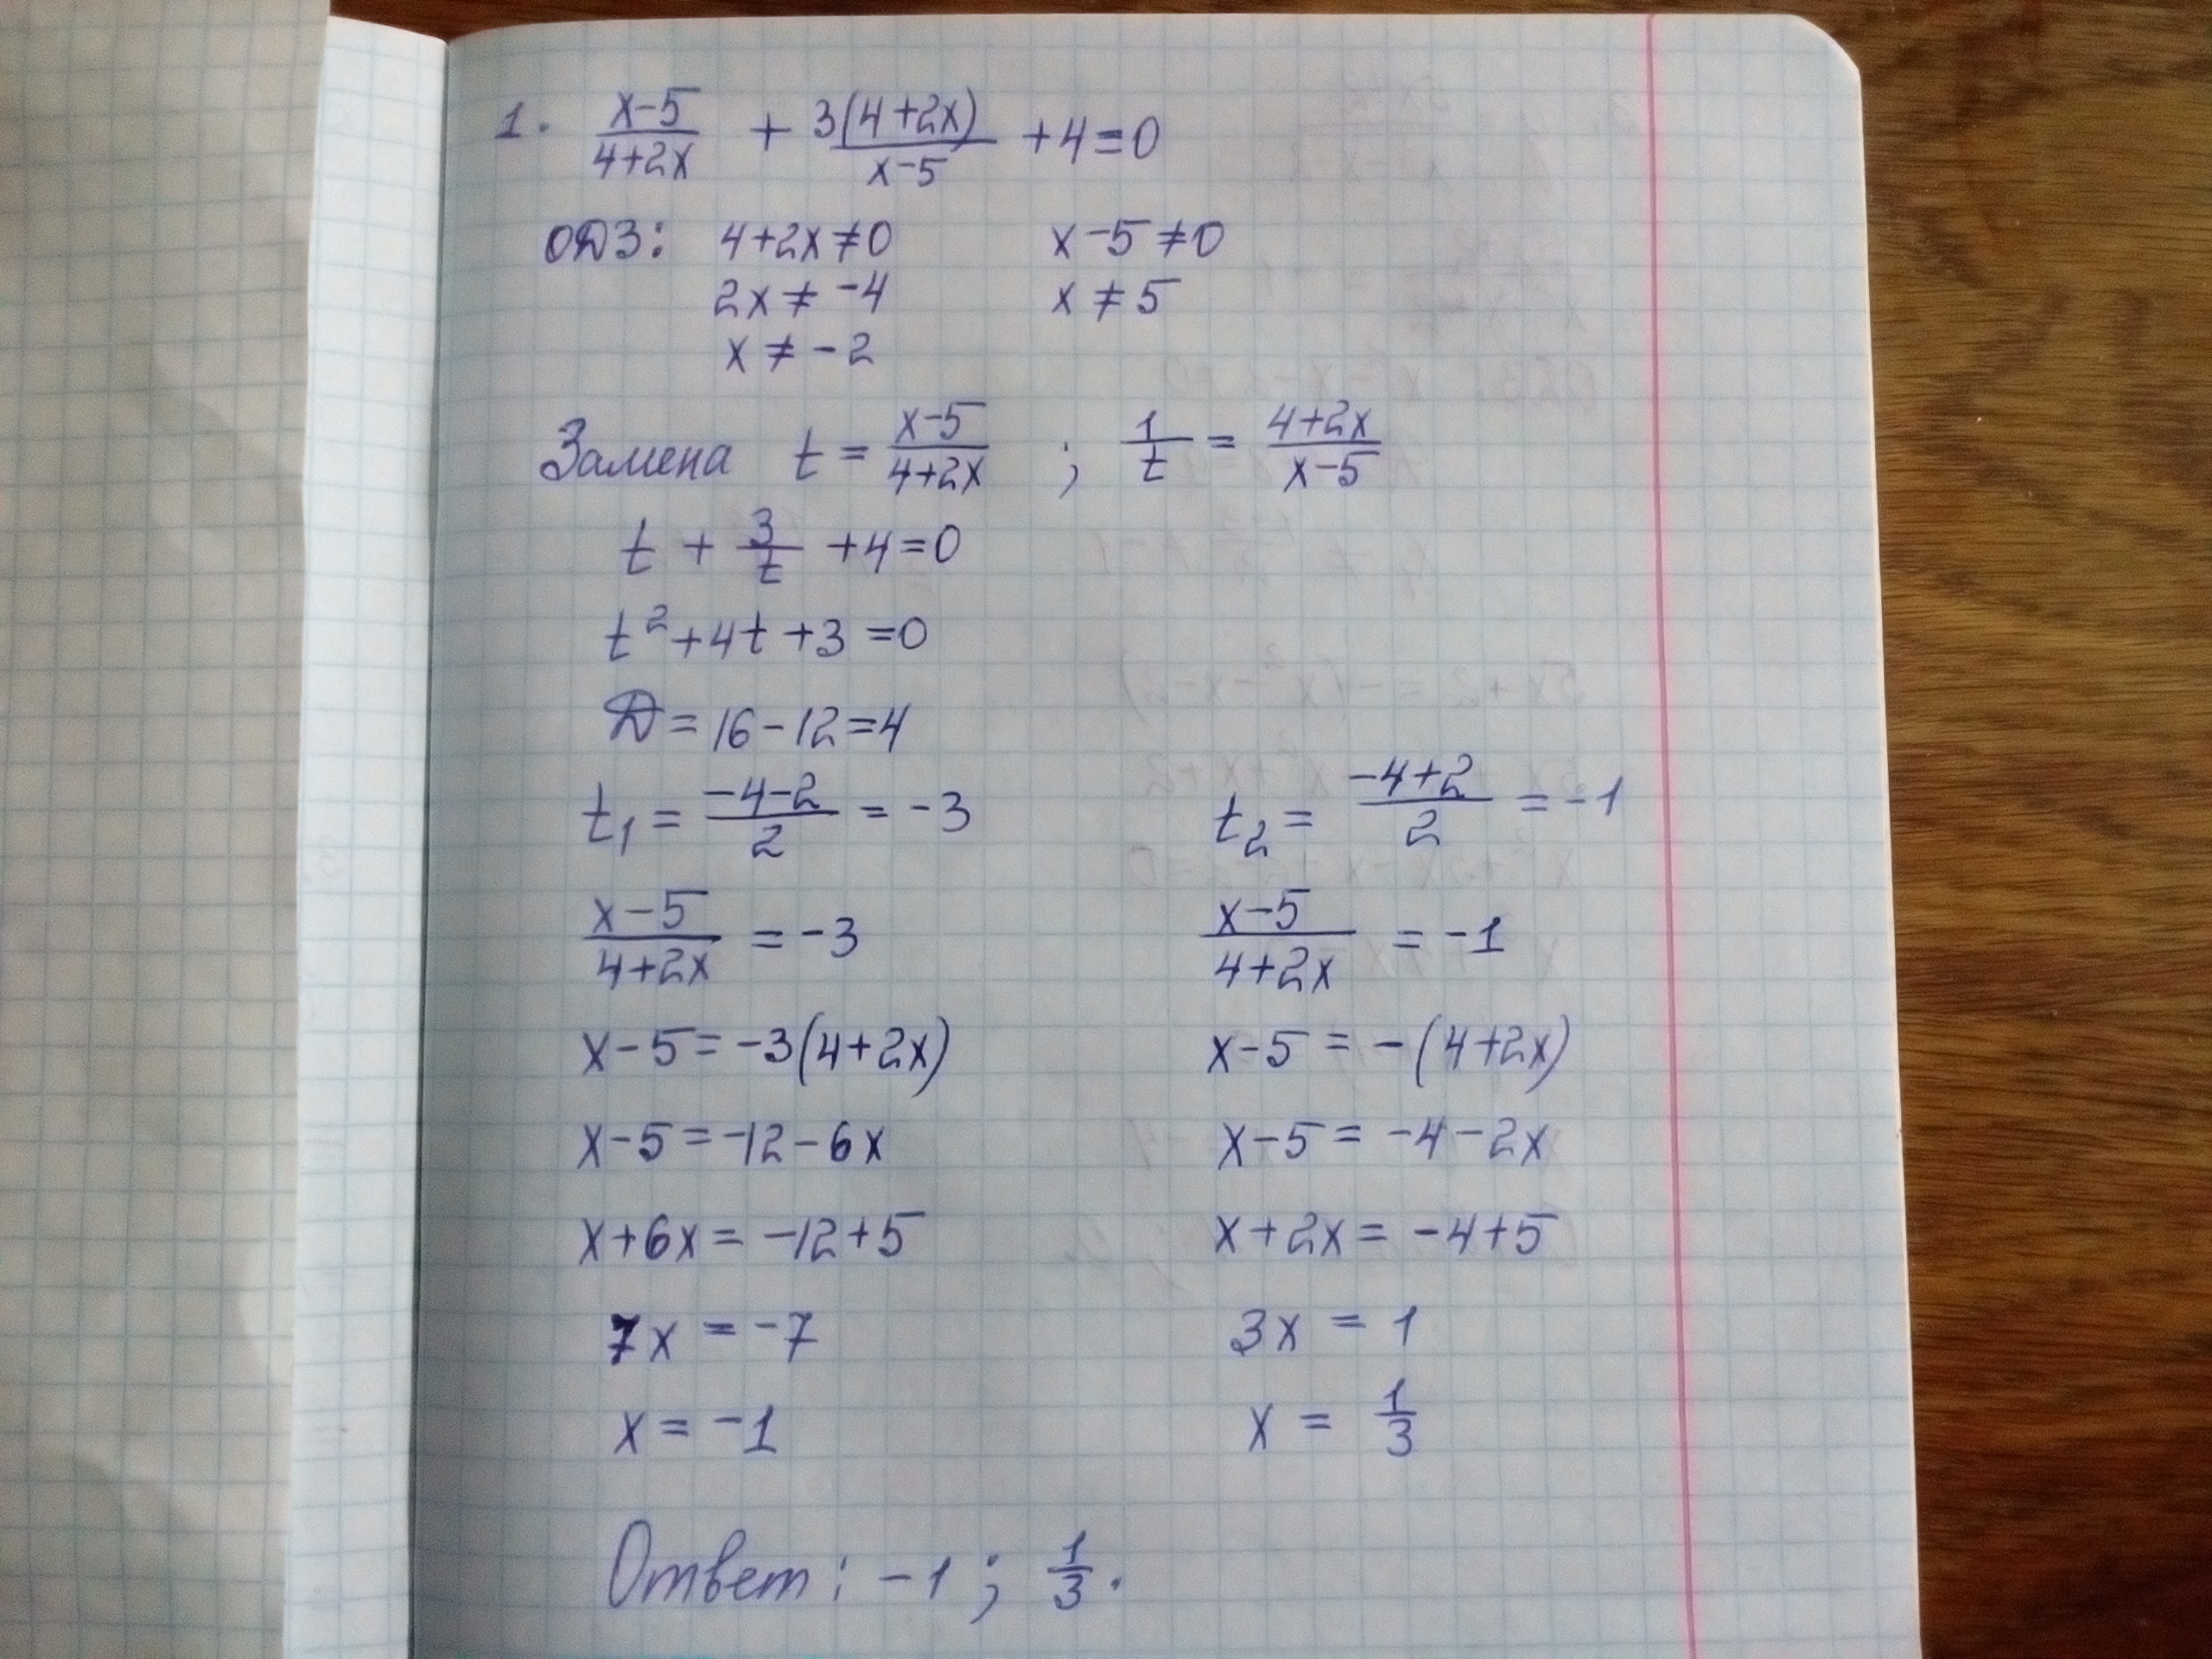 1. (x-5)/(4+2x) + 3(4+2x)/(x-5) +4=0
ОДЗ: 4+2x≠0 x-5≠0
2x≠-4 x≠5
x≠-2
Замена t = (x-5)/(4+2x) ; 1/t = (4+2x)/(x-5)
t + 3/t +4=0
t²+4t+3=0
Д=16-12=4
t₁ = (-4-2)/2 = -3 t₂ = (-4+2)/2 = -1
(x-5)/(4+2x) = -3 (x-5)/(4+2x) = -1
x-5=-3(4+2x) x-5=-(4+2x)
x-5=-12-6x x-5=-4-2x
x+6x=-12+5 x+2x=-4+5
7x=-7 3x=1
x=-1 x=1/3
Ответ: -1; 1/3.